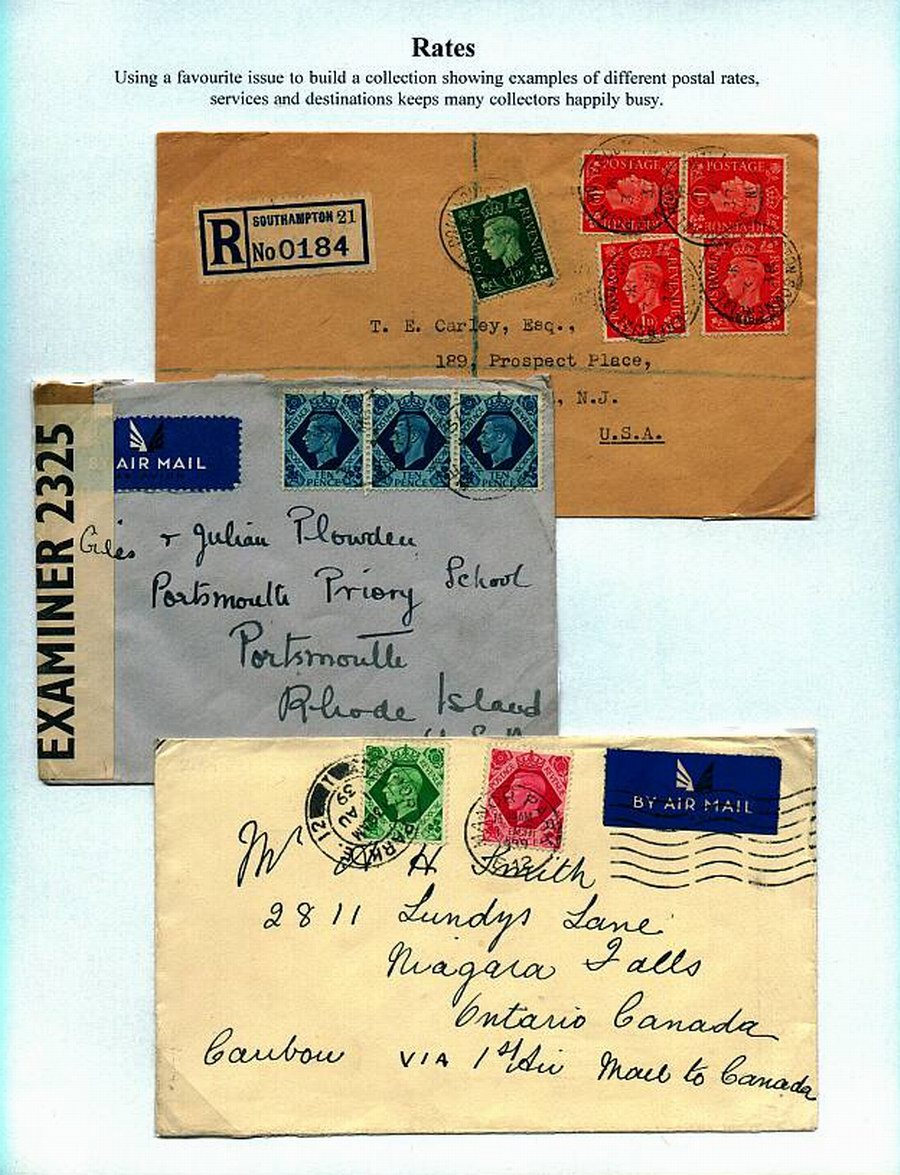 Rates
Using a favourite issue to build a collection showing examples of different postal rates,
services and destinations keeps many collectors happily busy.
R SOUTHAMPTON 21
No 0184
POSTAGE REVENUE
POSTAGE
POSTAGE
REVENUE
1D
T. E. Carley, Esq.,
189, Prospect Place,
, N.J.
U.S.A.
EXAMINER 2325
BY AIR MAIL
TEN PENCE
TEN PENCE
TEN PENCE
Giles & Julian Plowden
Portsmouth Priory School
Portsmouth
Rhode Island
U.S.A.
BY AIR MAIL
MANOR PARK
E 12
AU
39
1939
Mr H Smith
2811 Lundys Lane
Niagara Falls
Ontario Canada
Caribou VIA 1st Air Mail to Canada